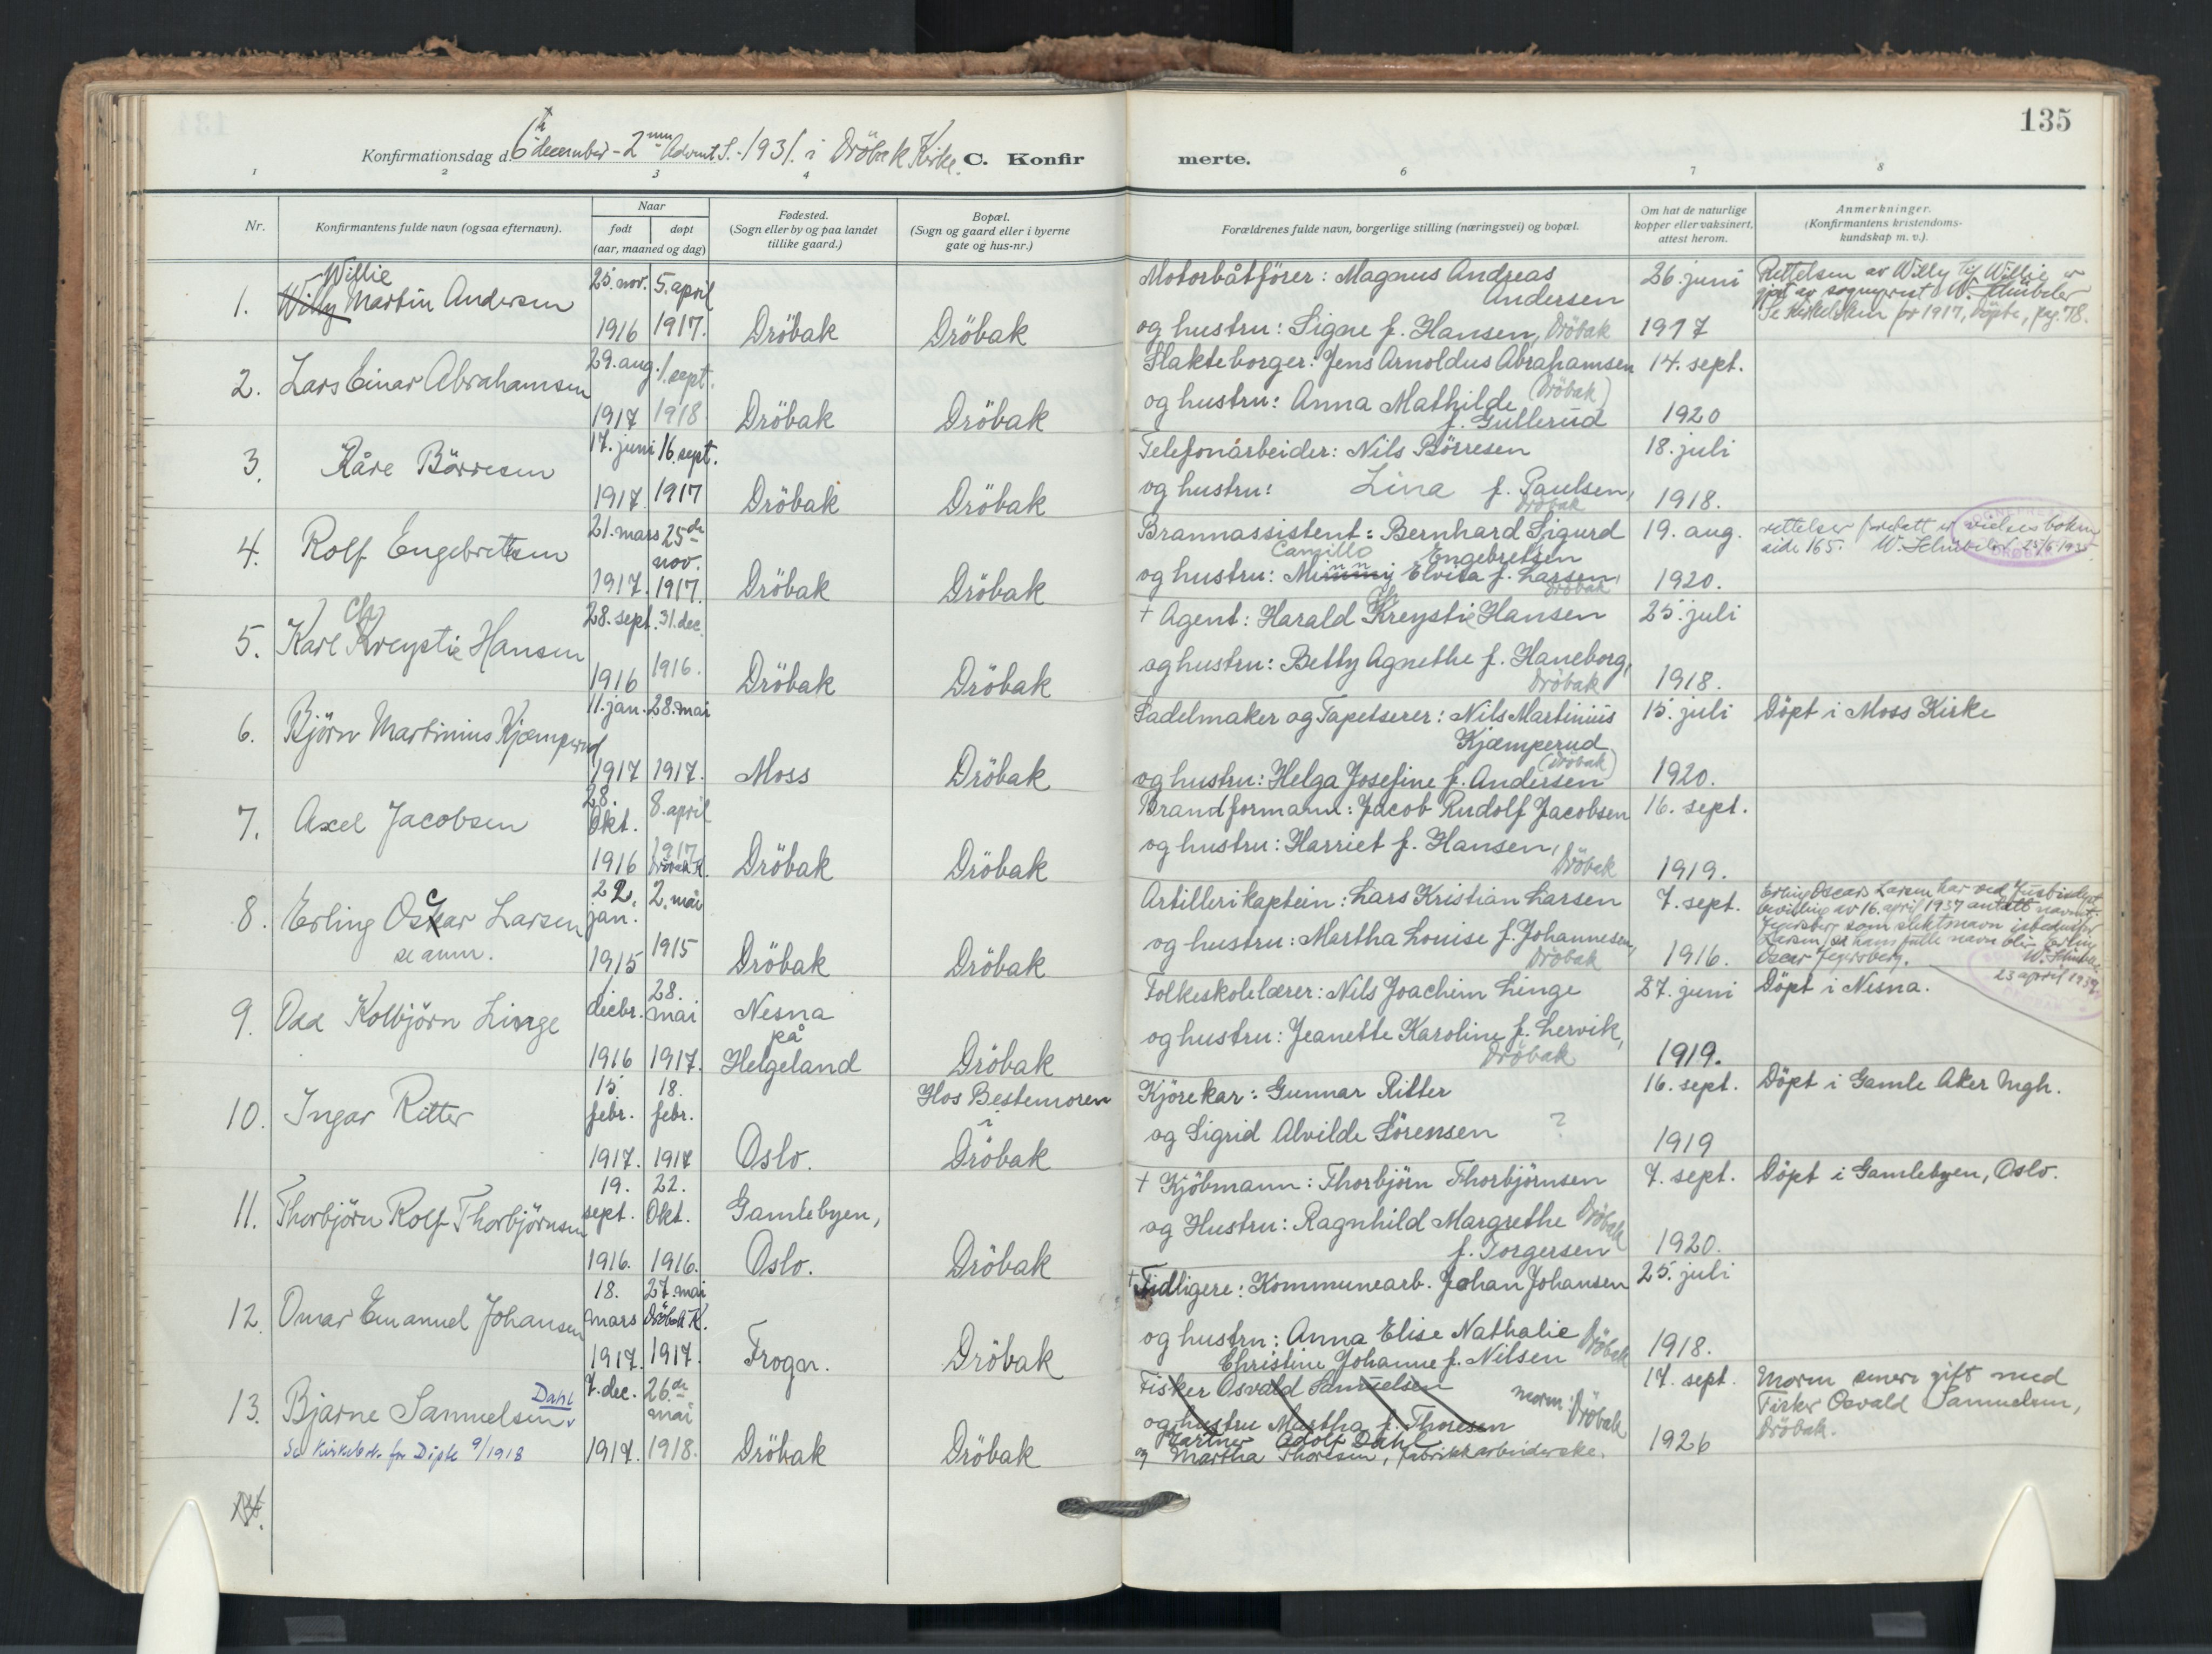 135
Konfirmationsdag d. 6te december - 2nn Advent S. - 1931. i Dröbak Kirke. C. Konfir merte.
1 2 3 4 6 7 8
Nr. Konfirmantens fulde navn (ogsaa efternavn). Naar født døpt (aar, maaned og dag) Fødested. (Sogn eller by og paa landet tillike gaard.) Bopæl. (Sogn og gaard eller i byerne gate og hus-nr.) Forældrenes fulde navn, borgerlige stilling (næringsvei) og bopæl. Om hat de naturlige kopper eller vaksinert, attest herom. Anmerkninger. (Konfirmantens kristendomskundskap m. v.).
1. Willie Willy Martin Andersen 25. nov. 1916 5. april 1917. Dröbak Dröbak
Motorbåtförer: Magnus Andreas Andersen
og hustru: Signe f. Hansen, Dröbak
26. juni 1917
Rettelsen av Willy til Willie er
gjort av sogneprest W. Schübeler
Se kirkeboken for 1917, döpte, pag. 78.
2. Lars Einar Abrahamsen 29. aug. 1917 1. sept. 1918 Dröbak Dröbak
Slakteborger: Jens Arnoldus Abrahamsen
og hustru: Anna Mathilde (Dröbak)
f. Gullerud
14. sept. 1920
3. Kåre Börresen 17. juni 1917 16. sept. 1917 Dröbak Dröbak
Telefonarbeider: Nils Börresen
og hustru: Lina f. Paulsen,
Dröbak
18. juli 1918.
4. Rolf Engebretsen 21. mars 1917. 25de nov. 1917. Dröbak Dröbak
Brannassistent: Bernhard Sigurd
Engebretsen
Camilla
og hustru: Minny Elvita f. Larsen,
Dröbak
19. aug. 1920.
rettelser foretatt i vielses boken
side 165. W. Schübeler 25/6 1935.
5. Karl Ch Kreystie Hansen 28. sept. 1916 31. dec. 1916. Dröbak Dröbak
† Agent: Harald Ch Kreystie Hansen
og hustru: Betty Agnethe f. Haneborg,
Dröbak
25. juli 1918.
6. Björn Martinius Kjæmperud 11. jan. 1917 28. mai 1917. Moss Dröbak
Sadelmaker og Tapetserer: Nils Martinius
Kjæmperud
(Dröbak)
og hustru: Helga Josefine f. Andersen
15. juli 1920.
Döpt i Moss Kirke
7. Axel Jacobsen 28. Okt. 1916 8. april 1917 Dröbak K. Dröbak Dröbak
Brandformann: Jacob Rudolf Jacobsen
og hustru: Harriet f. Hansen,
Dröbak
16. sept. 1919.
8. Erling Oscar Larsen 22. jan. 1915 2. mai 1915 Dröbak Dröbak
se anm.
Artillerikaptein: Lars Kristian Larsen
og hustru: Martha Louise f. Johannesen,
Dröbak
7. sept. 1916.
Erling Oscar Larsen har ved Justisdept
bevilling av 16. april 1937 antatt navnet
Jegersberg som slektsnavn istedenfor
Larsen, så hans fulle navn blir Erling
Oscar Jegersberg. W. Schübeler
23 april 1937
9. Odd Kolbjörn Linge 1. decbr. 1916 28. mai 1917. Nesna på Helgeland Dröbak
Folkeskolelærer: Nils Joachim Linge
og hustru: Jeanette Karoline f. Lervik,
Dröbak
27. juni 1919.
Döpt i Nesna.
10. Ingar Ritter 15. febr. 1917. 18. febr. 1917 Oslo. Hos Bestemoren i Dröbak
Kjörekar: Gunnar Ritter
og Sigrid Alvilde Sörensen ?
16. sept. 1919
Döpt i Gamle Aker Mgh.
11. Thorbjörn Rolf Thorbjörnsen 19. sept. 1916. 22. Okt. 1916. Gamlebyen, Oslo. Dröbak
† Kjöbmann: Thorbjörn Thorbjörnsen
og Hustru: Ragnhild Margrethe Dröbak
f. Torgersen
7. sept. 1920.
Döpt i Gamlebyen, Oslo.
12. Omar Emanuel Johansen 18. mars 1917. 27. mai Dröbak K. 1917. Frogn. Dröbak
† Tidligere: Kommunearb. Johan Johansen
og hustru: Anna Elise Nathalie Dröbak
Christine Johanne f. Nilsen
25. juli 1918.
13. Bjarne Samuelsen Dahl 7. dec. 1917. 26de mai 1918. Dröbak Dröbak
Se Kirkebok for Döpte 9/1918
Fisker Osvald Samuelsen
og hustru Martha f. Thoresen morm. Dröbak
Gartner Adolf Dahl
og Martha Thoresen, fabrikkarbeiderske.
17. sept. 1926
Moren senere gift med
Fisker Osvald Samuelsen,
Dröbak.
14.